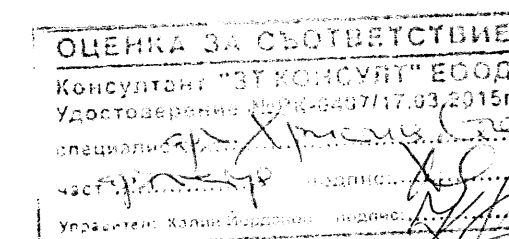 ОЦЕНКА ЗА СЪОТВЕТСТВИЕ
Консултант "ЗТ КОНСУЛТ" ЕООД
Удостоверение №РК-0497/17.03.2015г
специалист арх. Христина
част
подпис:
Управител: Калин Йорданов подпис: